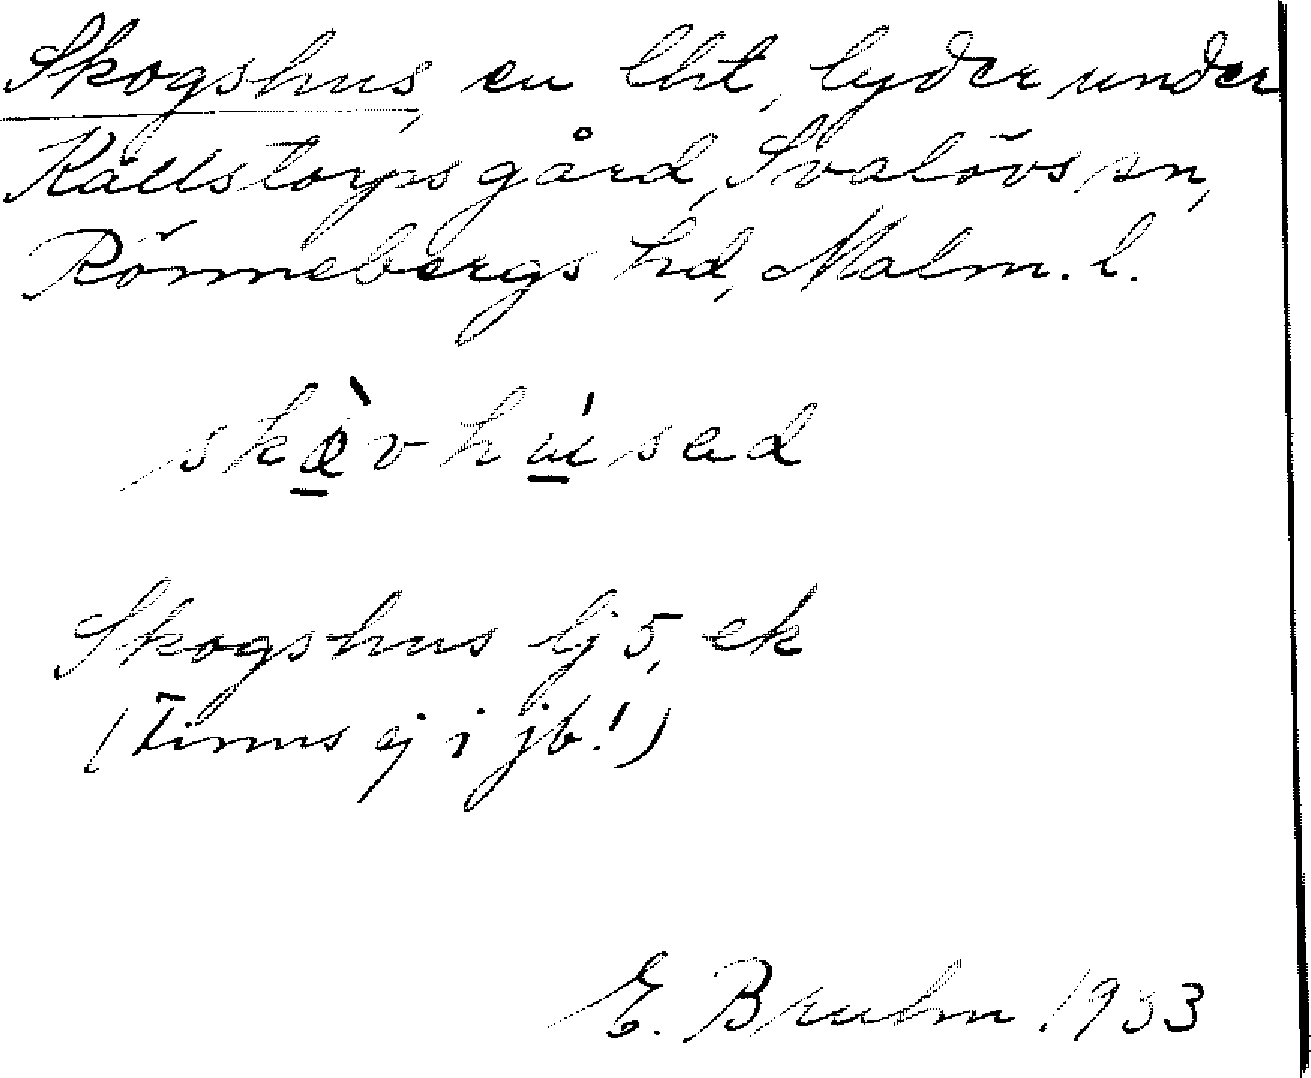 Skogshus, en lht, lyder under
Källstorps gård, Svalövs sn,
Rönnebergs hd, Malm. l.
Skogshus bj 5, ek
(Finns ej i jb!)
E. Bruhn 1933